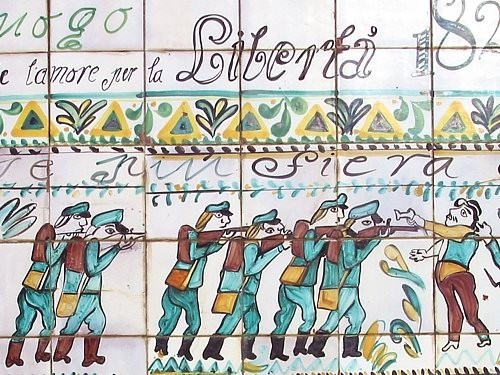 nogo
e l'amore per la Libertà 182
ve Ninfiera